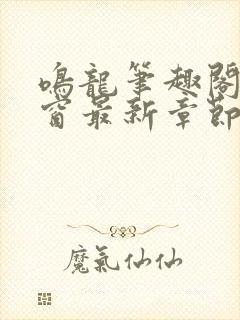 鳴龍筆趣閣
窗最新章節
魔氣仙仙